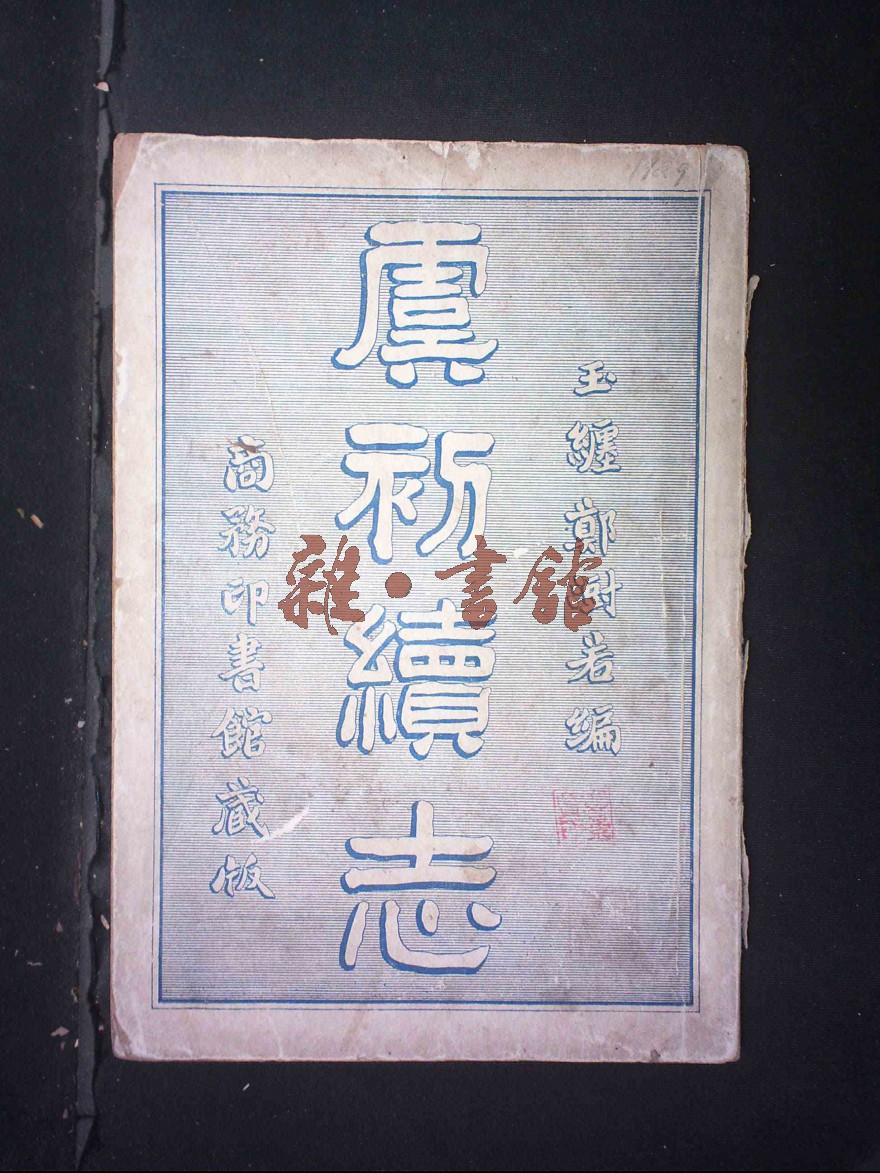 玉纒鄭澍若編
虞初續志
商務印書館藏版
雜·書館